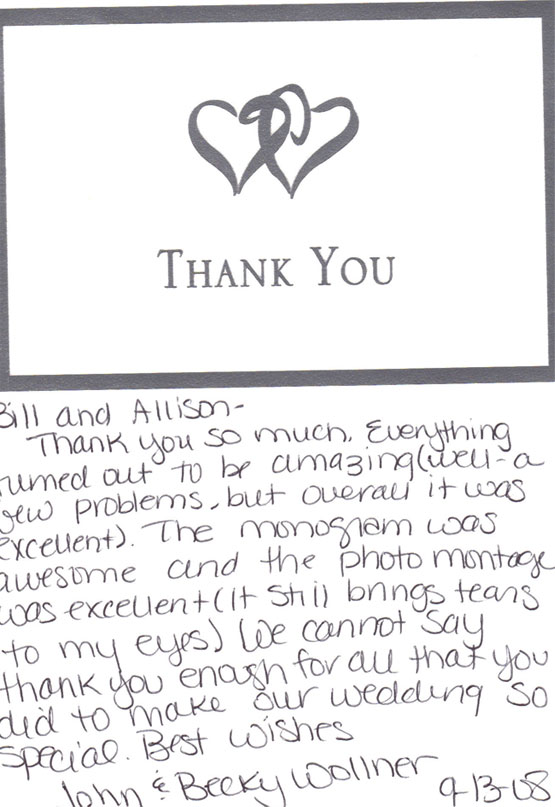 THANK YOU
Bill and Allison-
Thank you so much. Everything
turned out to be amazing (well-a
few problems, but overall it was
excellent). The monogram was
awesome and the photo montage
was excellent (it still brings tears
to my eyes) We cannot say
thank you enough for all that you
did to make our wedding so
special. Best wishes
John & Becky Wollner
9-13-08